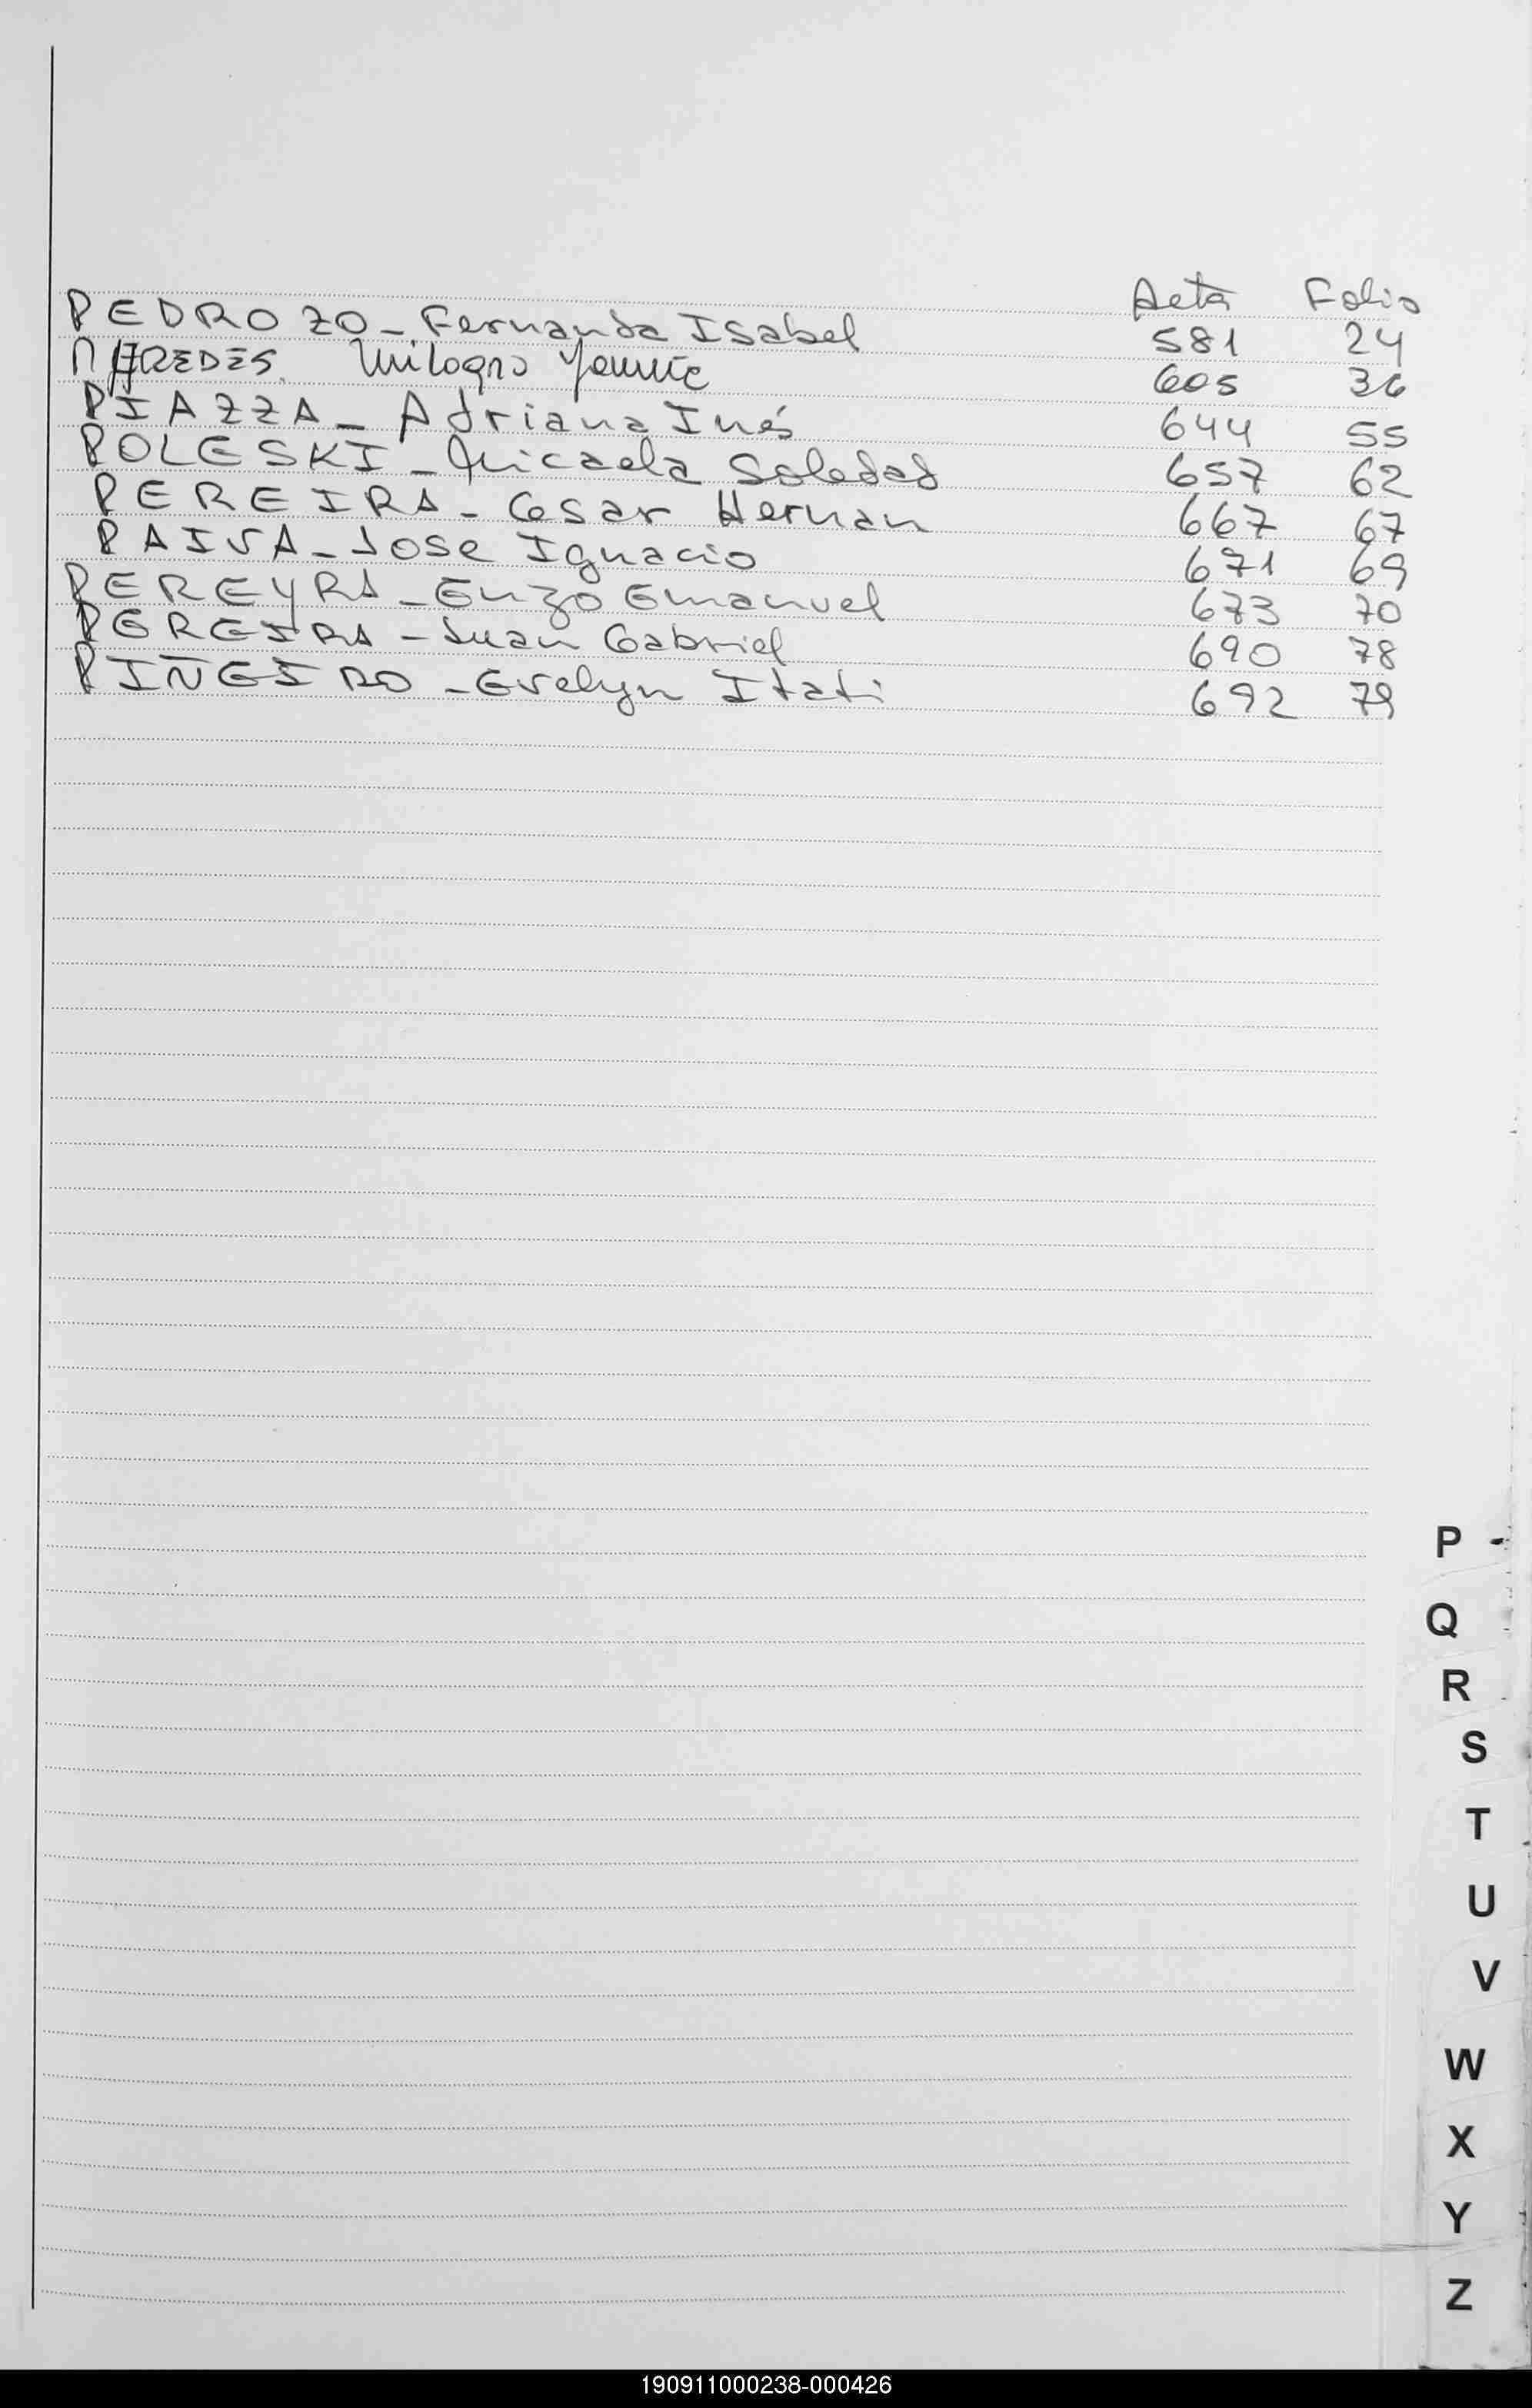 Acta Folio
PEDROZO - Fernanda Isabel 581 24
PAREDES. Milagro 605 36
PIAZZA - Adriana Inés 644 55
POLESKI - Micaela Soledad 657 62
PEREIRA - Cesar Hernan 667 67
PAIVA - Jose Ignacio 671 69
PEREYRA - Enzo Emanuel 673 70
PEREIRA - Juan Gabriel 690 78
PIÑEIRO - Evelyn Itati 692 79
P
Q
R
S
T
U
V
W
X
Y
Z
190911000238-000426